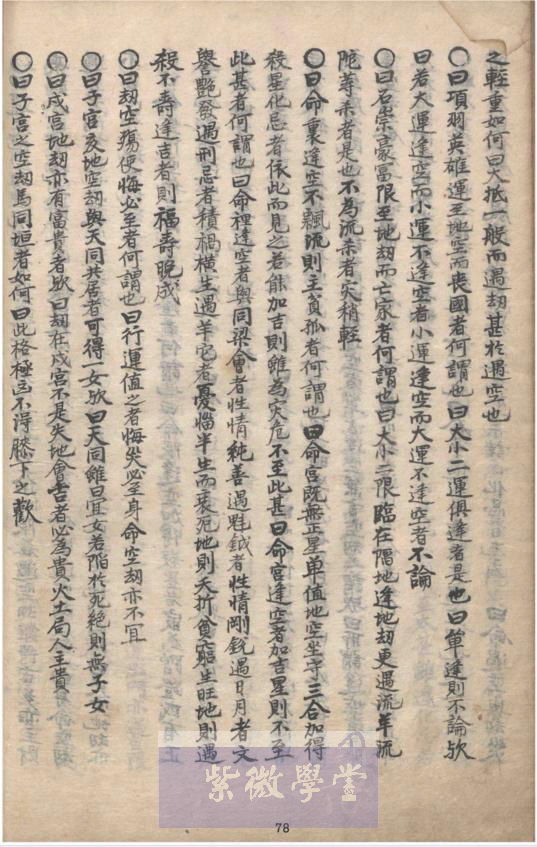 之輕重如何曰大抵一般而遇劫甚於遇空也
〇曰項羽英雄運至地空而喪國者何謂也曰大小二運俱逢者是也曰單逢則不論欤
曰若大運逢空而小運不逢空者小運逢空而大運不逢空者不論
〇曰石崇豪富限至地劫而亡家者何謂也曰大小二限臨在陷地逢地劫更遇流羊流
陀等杀者是也不為流杀者灾稍輕
〇曰命裏逢空不飄流則主貧孤者何謂也曰命宮既無正星单值地空坐守三合加得
殺星化忌者依此而見之若能加吉則雖為灾危不至此甚曰命宮逢空者加吉星則不至
此甚者何謂也曰命裡逢空者與同梁會者性情純善遇魁鉞者性情剛銳遇日月者文
譽艷發遇刑忌者積禍橫生遇羊它者憂惱半生而衰范地則夭折貧窮生旺地則遇
殺不壽逢吉者則福壽晚成
〇曰劫空殤使悔必至者何謂也曰行運值之者悔災必至身命空劫亦不宜
〇曰子宮亥地空劫與天同共居者可得一女欤曰天同雖曰宜女若陷於死絕則無子女
〇曰戌宮地劫亦有富貴者欤曰劫在戌宮不是失地會吉者必為貴火土局人主貴
〇曰子宮之空劫馬同垣者如何曰此格極忌不得膝下之歡
紫微學堂
78